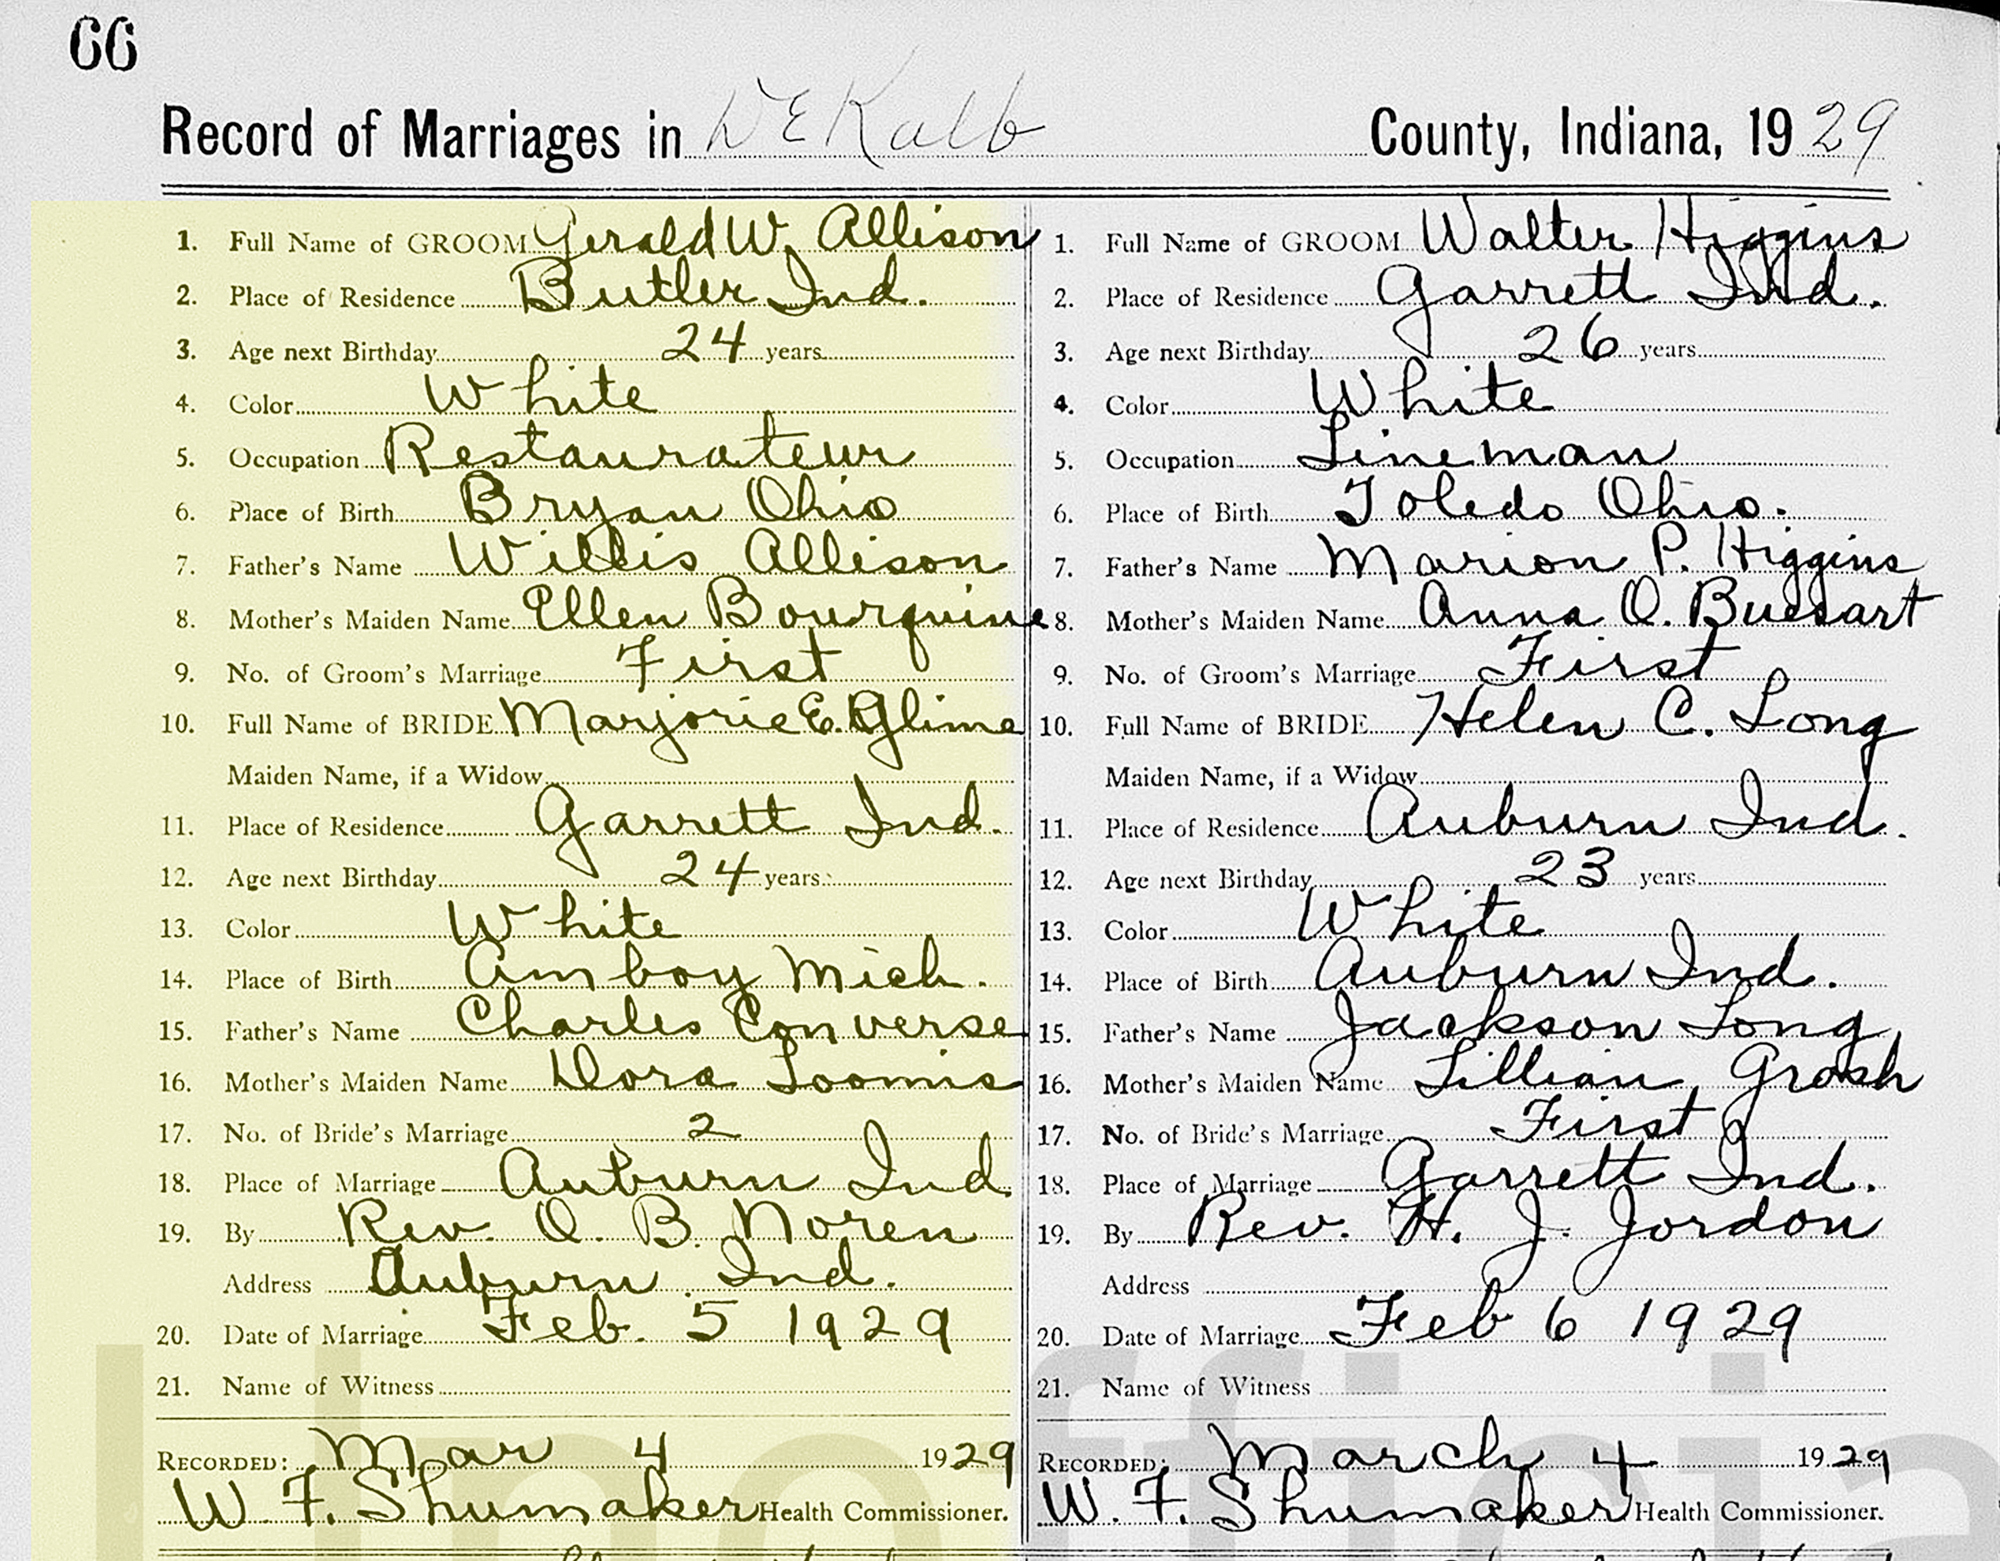 66
Record of Marriages in DeKalb County, Indiana, 1929
1. Full Name of GROOM Gerald W. Allison
2. Place of Residence Butler Ind.
3. Age next Birthday 24 years
4. Color White
5. Occupation Restaurateur
6. Place of Birth Bryan Ohio
7. Father's Name Willis Allison
8. Mother's Maiden Name Ellen Bourquine
9. No. of Groom's Marriage First
10. Full Name of BRIDE Marjorie E. Glime
Maiden Name, if a Widow
11. Place of Residence Garrett Ind.
12. Age next Birthday 24 years
13. Color White
14. Place of Birth Amboy Mich.
15. Father's Name Charles Converse
16. Mother's Maiden Name Dora Loomis
17. No. of Bride's Marriage 2
18. Place of Marriage Auburn Ind
19. By Rev. O. B. Noren
Address Auburn Ind.
20. Date of Marriage Feb. 5 1929
21. Name of Witness
RECORDED: Mar 4 1929
W. F. Shumaker Health Commissioner.
1. Full Name of GROOM Walter Higgins
2. Place of Residence Garrett Ind.
3. Age next Birthday 26 years
4. Color White
5. Occupation Lineman
6. Place of Birth Toledo Ohio.
7. Father's Name Marion P. Higgins
8. Mother's Maiden Name Anna O. Buesart
9. No. of Groom's Marriage First
10. Full Name of BRIDE Helen C. Long
Maiden Name, if a Widow
11. Place of Residence Auburn Ind.
12. Age next Birthday 23 years
13. Color White
14. Place of Birth Auburn Ind.
15. Father's Name Jackson Long
16. Mother's Maiden Name Lillian Grosh
17. No. of Bride's Marriage First
18. Place of Marriage Garrett Ind.
19. By Rev. H. J. Jordon
Address
20. Date of Marriage Feb 6 1929
21. Name of Witness
RECORDED: March 4 1929
W. F. Shumaker Health Commissioner.